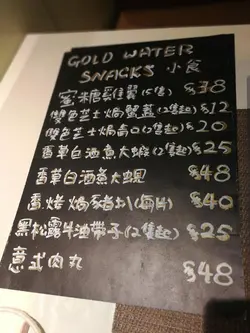 GOLD WATER
SNACKS 小食
蜜糖雞翼(5隻) $38
雙色芝士焗蟹蓋(2隻起) $12
雙色芝士焗(2隻起) $20
香草白酒煮大蝦(2隻起) $25
香草白酒煮大蜆 $48
香烤焗豬扒() $40
黑松露牛油帶子(2隻起) $25
意式肉丸 $48